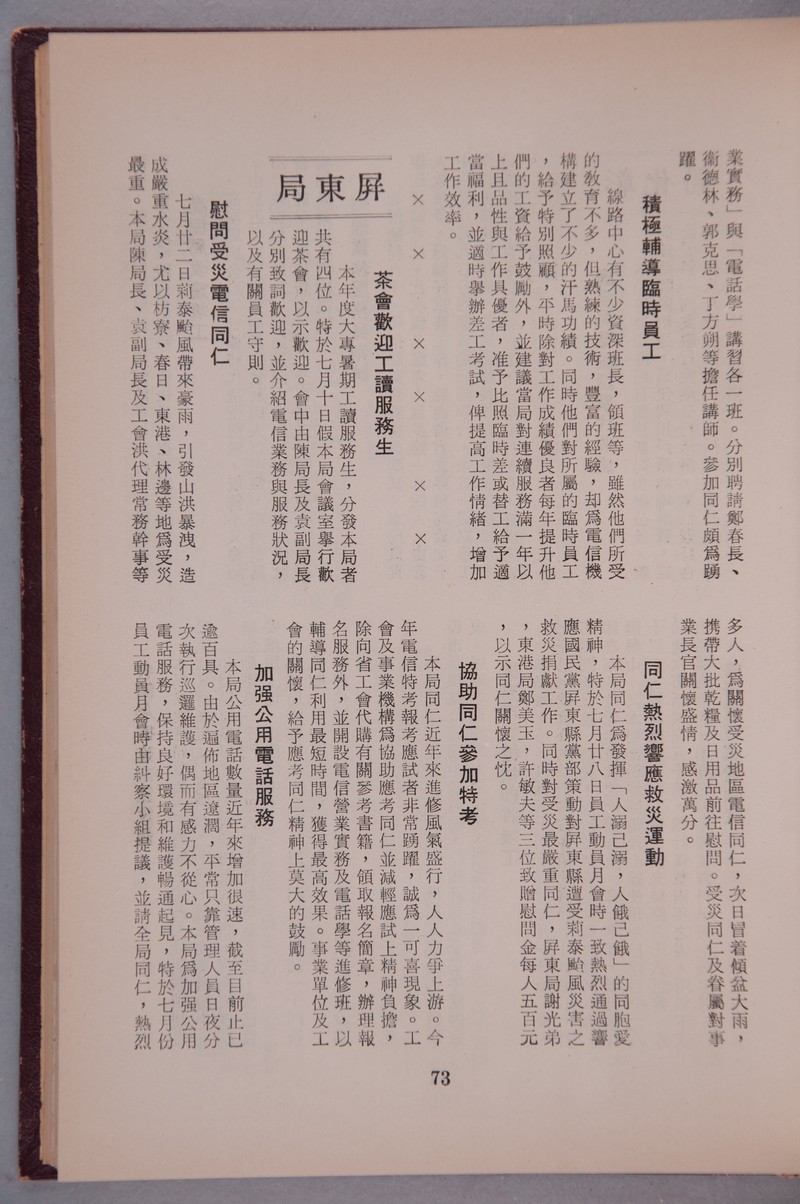 業實務」與「電話學」講習各一班。分別聘請鄭春長、
衞德林、郭克思、丁方朔等擔任講師。參加同仁頗爲踴
躍。
積極輔導臨時員工
線路中心有不少資深班長，領班等，雖然他們所受
的敎育不多，但熟練的技術，豐富的經驗，却爲電信機
構建立了不少的汗馬功績。同時他們對所屬的臨時員工
，給予特別照顧，平時除對工作成績優良者每年提升他
們的工資給予鼓勵外，並建議當局對連續服務滿一年以
上且品性與工作具優者，准予比照臨時差或替工給予適
當福利，並適時舉辦差工考試，俾提高工作情緒，增加
工作效率。
× × × × × ×
屏東局
茶會歡迎工讀服務生
本年度大專暑期工讀服務生，分發本局者
共有四位。特於七月十日假本局會議室舉行歡
迎茶會，以示歡迎。會中由陳局長及袁副局長
分別致詞歡迎，並介紹電信業務與服務狀況，
以及有關員工守則。
慰問受災電信同仁
七月廿二日莿泰颱風帶來豪雨，引發山洪暴洩，造
成嚴重水災，尤以枋寮、春日、東港、林邊等地爲受災
最重。本局陳局長、袁副局長及工會洪代理常務幹事等
多人，爲關懷受災地區電信同仁，次日冒着傾盆大雨，
携帶大批乾糧及日用品前往慰問。受災同仁及眷屬對事
業長官關懷盛情，感激萬分。
同仁熱烈響應救災運動
本局同仁爲發揮「人溺己溺，人餓己餓」的同胞愛
精神，特於七月廿八日員工動員月會時一致熱烈通過響
應國民黨屏東縣黨部策動對屏東縣遭受莿泰颱風災害之
救災捐獻工作。同時對受災最嚴重同仁，屏東局謝光弟
，東港局鄭美玉，許敏夫等三位致贈慰問金每人五百元
，以示同仁關懷之忱。
協助同仁參加特考
本局同仁近年來進修風氣盛行，人人力爭上游。今
年電信特考報考應試者非常踴躍，誠爲一可喜現象。工
會及事業機構爲協助應考同仁並減輕應試上精神負擔，
除向省工會代購有關參考書籍，領取報名簡章，辦理報
名服務外，並開設電信營業實務及電話學等進修班，以
輔導同仁利用最短時間，獲得最高效果。事業單位及工
會的關懷，給予應考同仁精神上莫大的鼓勵。
加强公用電話服務
本局公用電話數量近年來增加很速，截至目前止已
逾百具。由於遍佈地區遼濶，平常只靠管理人員日夜分
次執行巡邏維護，偶而有感力不從心。本局爲加强公用
電話服務，保持良好環境和維護暢通起見，特於七月份
員工動員月會時由糾察小組提議，並請全局同仁，熱烈
73